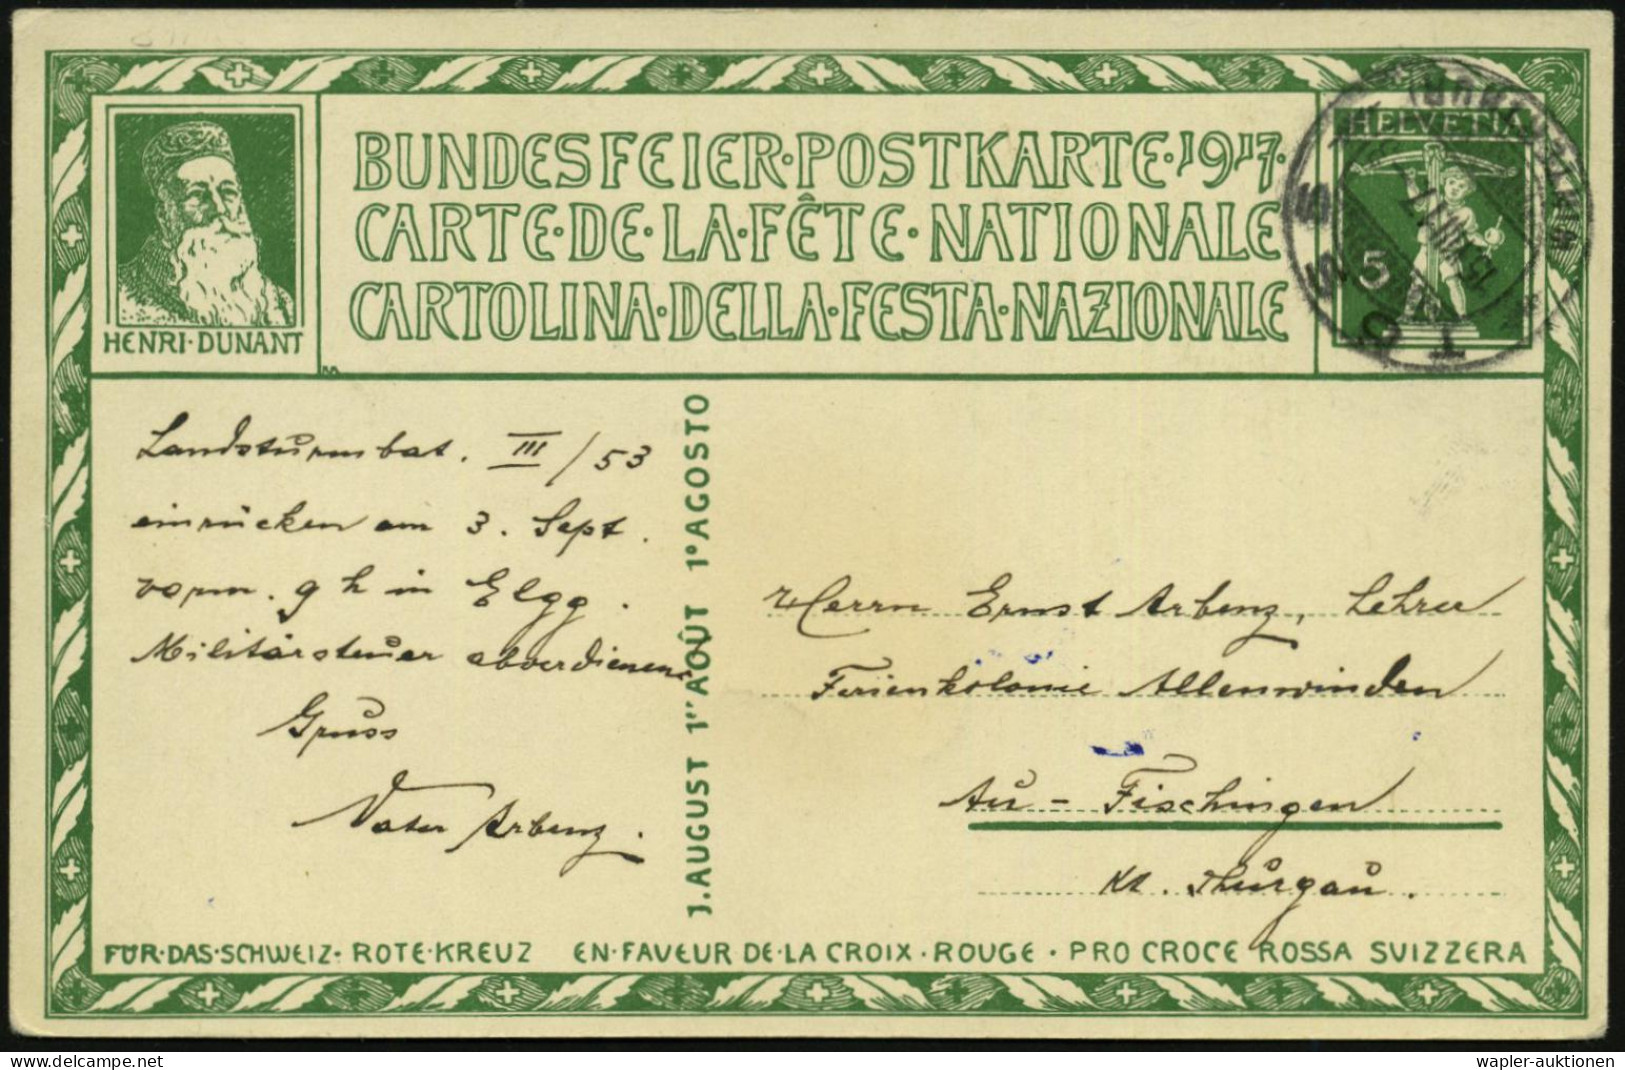 BUNDESFEIER·POSTKARTE·1917·
CARTE·DE·LA·FÊTE·NATIONALE
CARTOLINA·DELLA·FESTA·NAZIONALE
HENRI·DUNANT
HELVETIA
5
TÖSS
(WINTERTHUR)
15.VIII.17
Landsturmbat. III/53
einrücken am 3. Sept.
vorm. 9 h in Elgg.
Militärsteuer abverdienen
Gruss
Vater Arbenz.
1. AUGUST 1ER AOÛT 1º AGOSTO
Herrn Ernst Arbenz, Lehrer
Ferienkolonie Allenwinden
Au - Fischingen
Kt. Thurgau.
FÜR·DAS·SCHWEIZ·ROTE·KREUZ EN·FAVEUR DE·LA CROIX·ROUGE · PRO CROCE ROSSA SVIZZERA
Despositphotos